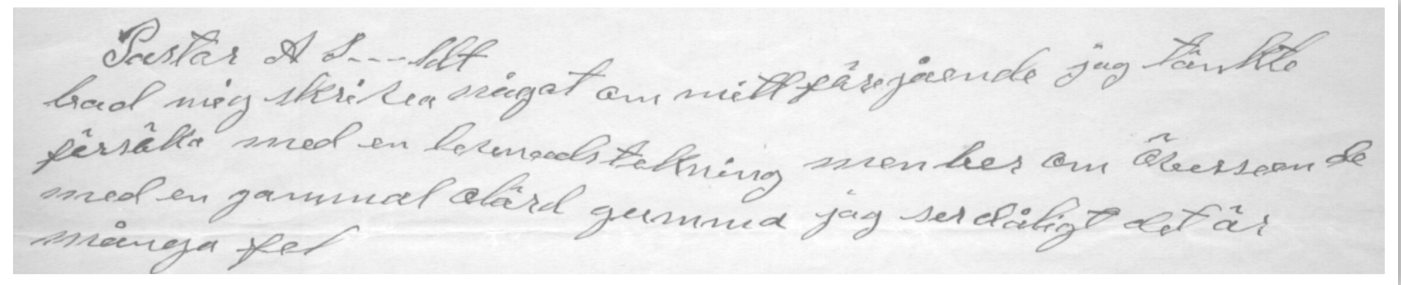 Pastår A S---ldt
bad mig skriva något om mitt föregående jag tänkte
försöka med en levnadstekning men ber om överseende
med en gammal olärd gumma jag ser dåligt det är
många fel